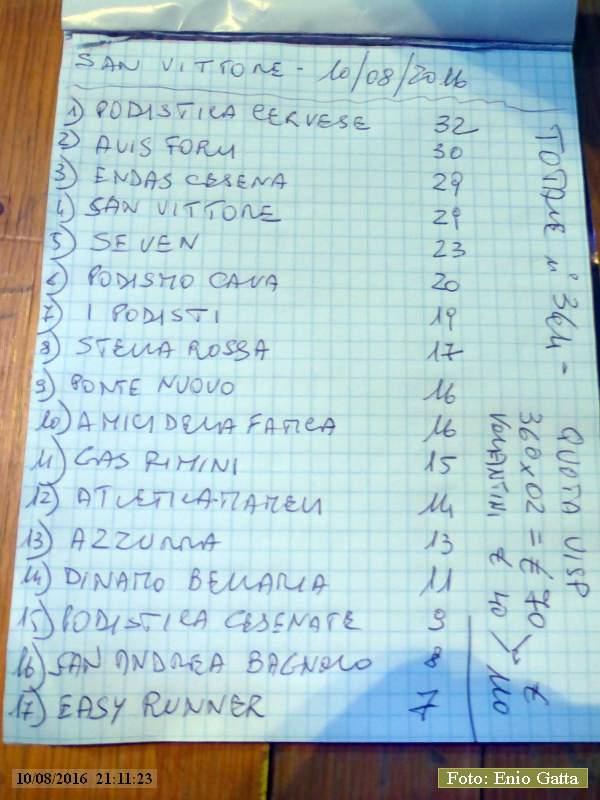 SAN VITTORE - 10/08/2016
1) PODISTICA CERVESE 32
2) AVIS FORLI 30
3) ENDAS CESENA 29
4) SAN VITTORE 29
5) SEVEN 23
6) PODISMO CAVA 20
7) I PODISTI 19
8) STELLA ROSSA 17
9) PONTE NUOVO 16
10) AMICI DELLA FATICA 16
11) GAS RIMINI 15
12) ATLETICA MAMELI 14
13) AZZURRA 13
14) DINAMO BELLARIA 11
15) PODISTICA CESENATE 9
16) SAN ANDREA BAGNOLO 8
17) EASY RUNNER 7
TOTALE n° 364 -
QUOTA UISP
360 x 02 = € 70
VOLANTINI € 40
€ 110
10/08/2016 21:11:23
Foto: Enio Gatta